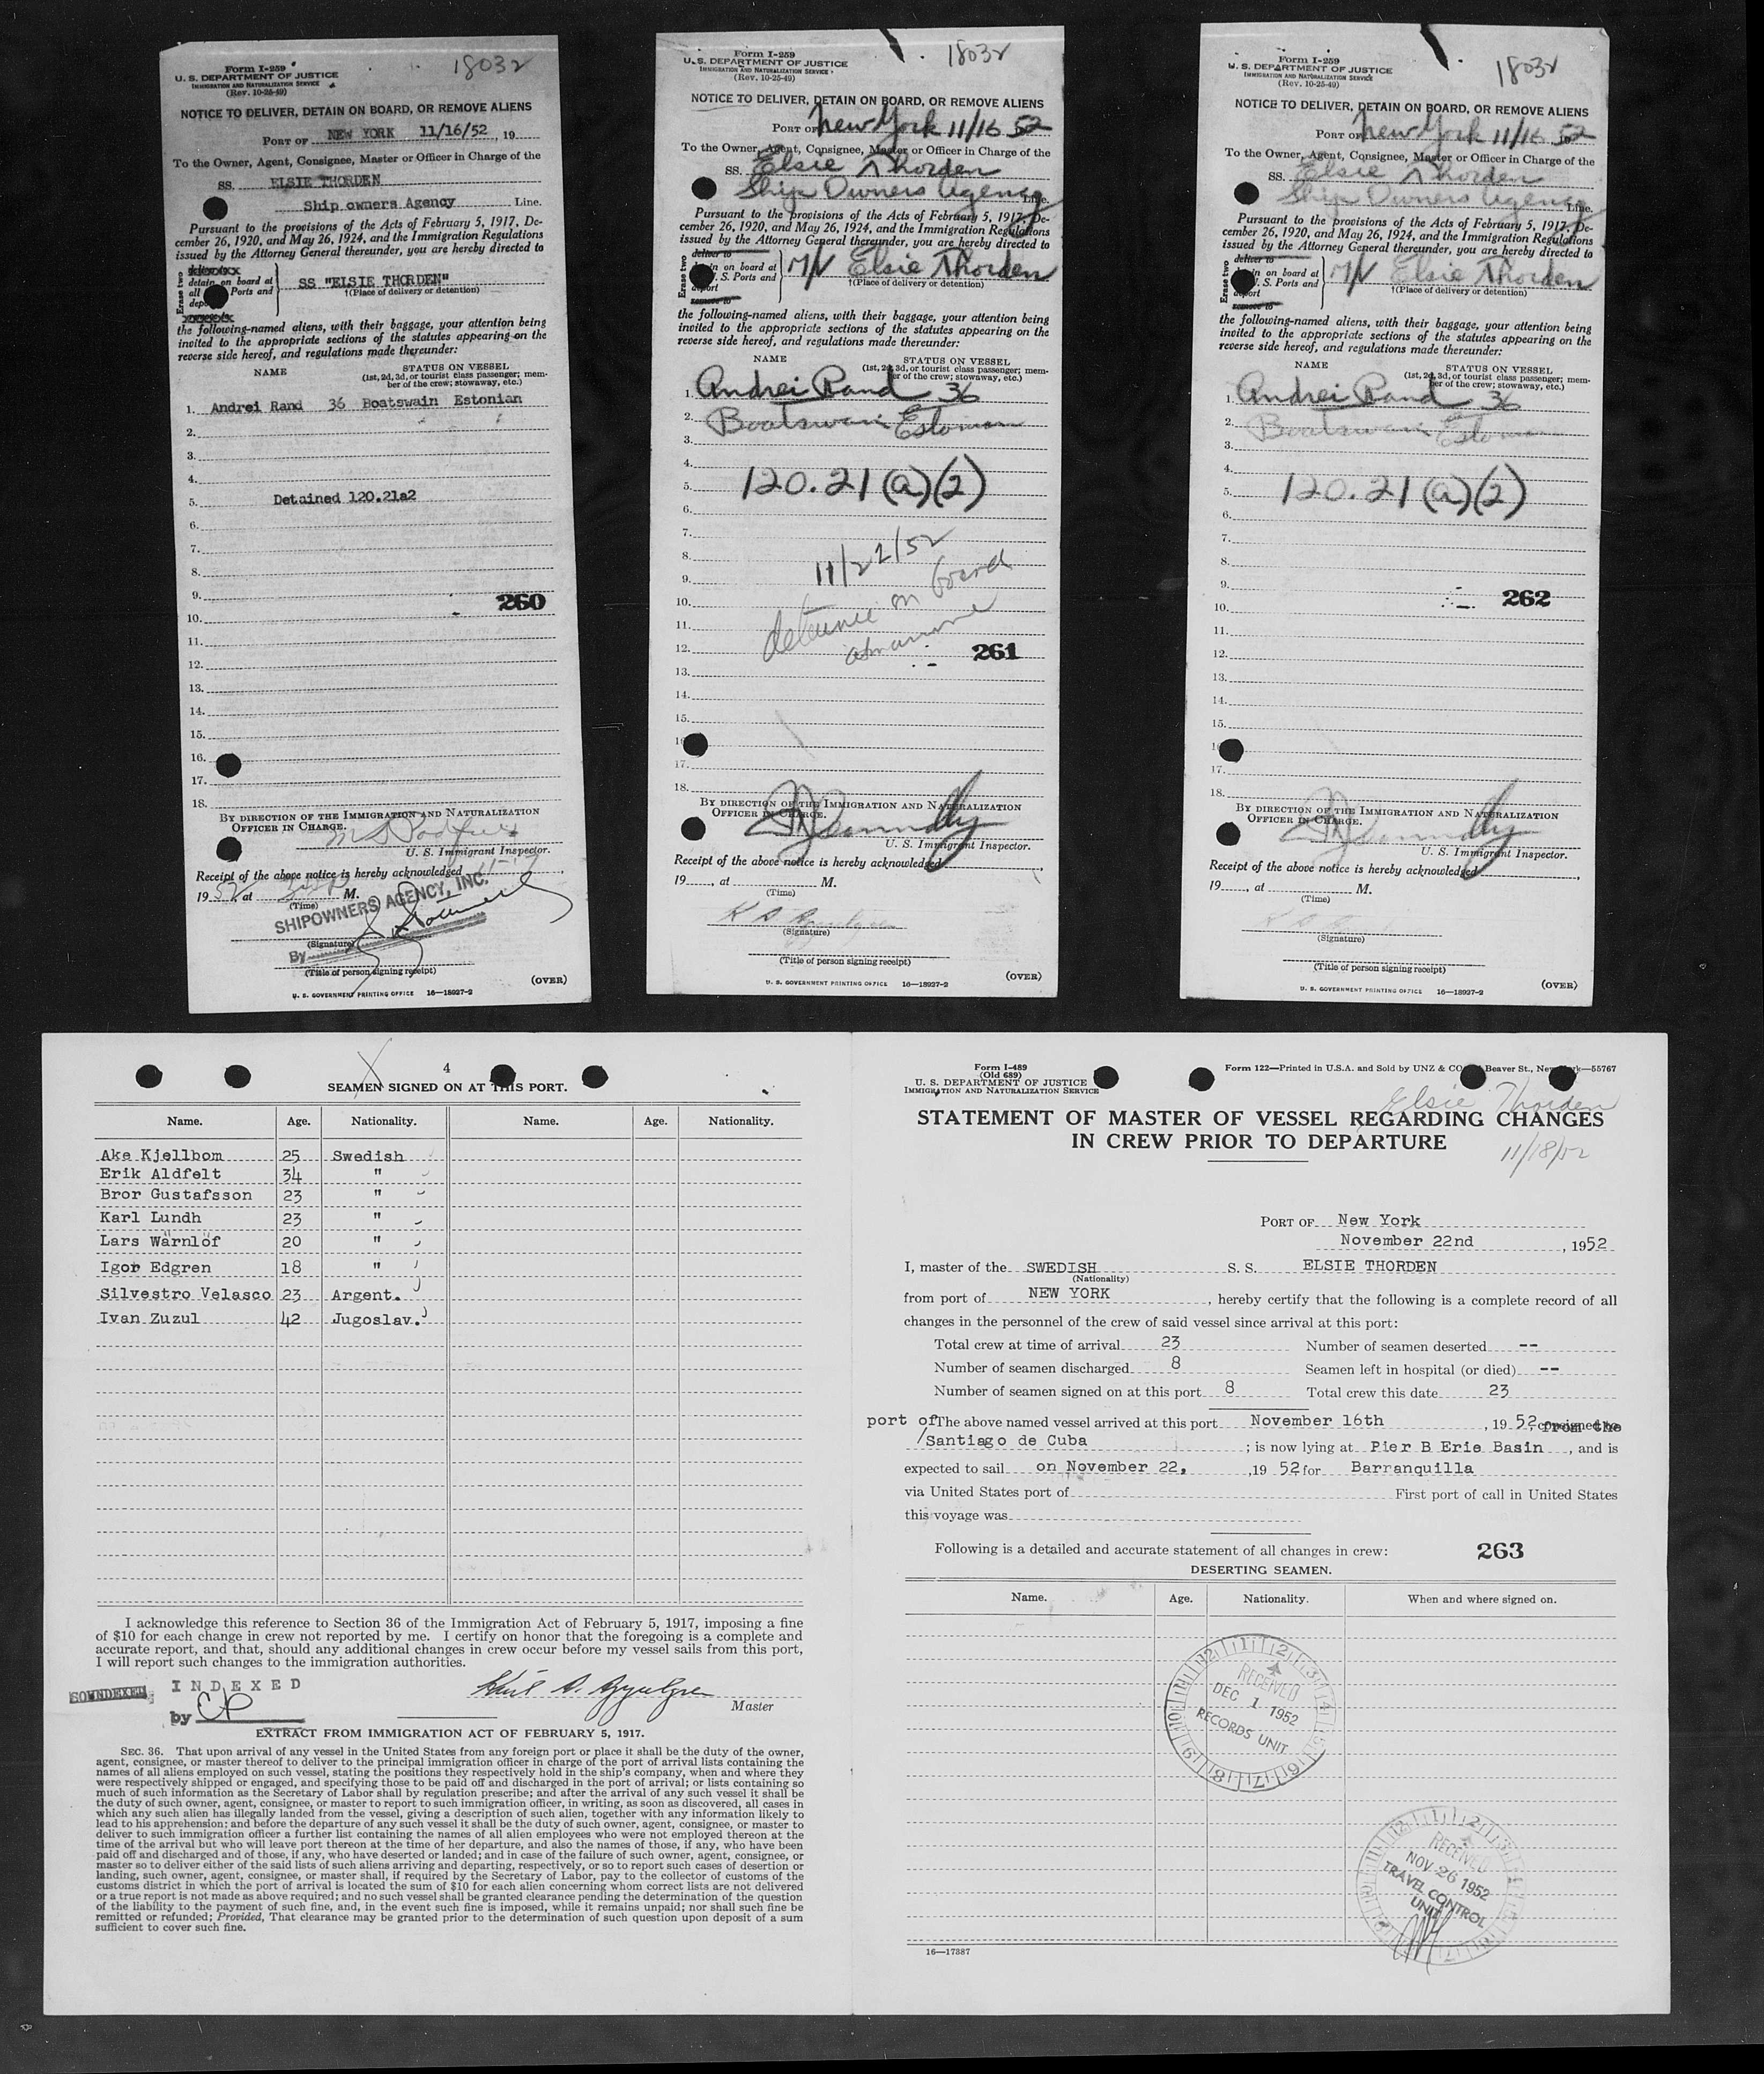 Form I-259
U. S. DEPARTMENT OF JUSTICE
IMMIGRATION AND NATURALIZATION SERVICE
(Rev. 10-25-49)
18032
NOTICE TO DELIVER, DETAIN ON BOARD, OR REMOVE ALIENS
PORT OF NEW YORK 11/16/52, 19
To the Owner, Agent, Consignee, Master or Officer in Charge of the
SS. ELSIE THORDEN
Ship owners Agency Line.
Pursuant to the provisions of the Acts of February 5, 1917, De-
cember 26, 1920, and May 26, 1924, and the Immigration Regulations
issued by the Attorney General thereunder, you are hereby directed to
Erase two
detain on board at
all Ports and
SS "ELSIE THORDEN"
†(Place of delivery or detention)
the following-named aliens, with their baggage, your attention being
invited to the appropriate sections of the statutes appearing on the
reverse side hereof, and regulations made thereunder:
NAME STATUS ON VESSEL
(1st, 2d, 3d, or tourist class passenger; mem-
ber of the crew; stowaway, etc.)
1. Andrei Rand 36 Boatswain Estonian
2.
3.
4.
5. Detained 120.21a2
6.
7.
8.
9.
260
10.
11.
12.
13.
14.
15.
16.
17.
18.
BY DIRECTION OF THE IMMIGRATION AND NATURALIZATION
OFFICER IN CHARGE.
U. S. Immigrant Inspector.
Receipt of the above notice is hereby acknowledged
1952, at M.
(Time)
SHIPOWNERS AGENCY, INC.
(Signature)
By
(Title of person signing receipt)
(OVER)
U. S. GOVERNMENT PRINTING OFFICE 16—18927-2
Form I-259
U. S. DEPARTMENT OF JUSTICE
IMMIGRATION AND NATURALIZATION SERVICE
(Rev. 10-25-49)
18032
NOTICE TO DELIVER, DETAIN ON BOARD, OR REMOVE ALIENS
PORT OF New York 11/16 52
To the Owner, Agent, Consignee, Master or Officer in Charge of the
SS. Elsie Thorden
Ship Owners Agency Line.
Pursuant to the provisions of the Acts of February 5, 1917, De-
cember 26, 1920, and May 26, 1924, and the Immigration Regulations
issued by the Attorney General thereunder, you are hereby directed to
Erase two
deliver to
on board at
S. Ports and
remove to
M/V Elsie Thorden
†(Place of delivery or detention)
the following-named aliens, with their baggage, your attention being
invited to the appropriate sections of the statutes appearing on the
reverse side hereof, and regulations made thereunder:
NAME STATUS ON VESSEL
(1st, 2d, 3d, or tourist class passenger; mem-
ber of the crew; stowaway, etc.)
1. Andrei Rand 36
2. Boatswain Estonian
3.
4.
5. 120.21(a)(2)
6.
7.
8. 11/22/52
9.
10. on board
11.
12.
261
13.
14.
15.
16
17.
18.
BY DIRECTION OF THE IMMIGRATION AND NATURALIZATION
OFFICER IN CHARGE.
U. S. Immigrant Inspector.
Receipt of the above notice is hereby acknowledged
19, at M.
(Time)
(Signature)
(Title of person signing receipt)
(OVER)
U. S. GOVERNMENT PRINTING OFFICE 16—18927-2
Form I-259
U. S. DEPARTMENT OF JUSTICE
IMMIGRATION AND NATURALIZATION SERVICE
(Rev. 10-25-49)
18032
NOTICE TO DELIVER, DETAIN ON BOARD, OR REMOVE ALIENS
PORT OF New York 11/16 52
To the Owner, Agent, Consignee, Master or Officer in Charge of the
SS. Elsie Thorden
Ship Owners Agency Line.
Pursuant to the provisions of the Acts of February 5, 1917, De-
cember 26, 1920, and May 26, 1924, and the Immigration Regulations
issued by the Attorney General thereunder, you are hereby directed to
Erase two
deliver to
on board at
S. Ports and
remove to
M/V Elsie Thorden
†(Place of delivery or detention)
the following-named aliens, with their baggage, your attention being
invited to the appropriate sections of the statutes appearing on the
reverse side hereof, and regulations made thereunder:
NAME STATUS ON VESSEL
(1st, 2d, 3d, or tourist class passenger; mem-
ber of the crew; stowaway, etc.)
1. Andrei Rand 36
2. Boatswain Estonian
3.
4.
5. 120.21(a)(2)
6.
7.
8.
9.
262
10.
11.
12.
13.
14.
15.
16
17.
18.
BY DIRECTION OF THE IMMIGRATION AND NATURALIZATION
OFFICER IN CHARGE.
U. S. Immigrant Inspector.
Receipt of the above notice is hereby acknowledged
19, at M.
(Time)
(Signature)
(Title of person signing receipt)
(OVER)
U. S. GOVERNMENT PRINTING OFFICE 16—18927-2
4
SEAMEN SIGNED ON AT THIS PORT.
Name. Age. Nationality. Name. Age. Nationality.
Ake Kjellbom 25 Swedish
Erik Aldfelt 34 "
Bror Gustafsson 23 "
Karl Lundh 23 "
Lars Wärnlöf 20 "
Igor Edgren 18 "
Silvestro Velasco 23 Argent.
Ivan Zuzul 42 Jugoslav.
I acknowledge this reference to Section 36 of the Immigration Act of February 5, 1917, imposing a fine
of $10 for each change in crew not reported by me. I certify on honor that the foregoing is a complete and
accurate report, and that, should any additional changes in crew occur before my vessel sails from this port,
I will report such changes to the immigration authorities.
SOWNDEXED
INDEXED
by CP
Master
EXTRACT FROM IMMIGRATION ACT OF FEBRUARY 5, 1917.
SEC. 36. That upon arrival of any vessel in the United States from any foreign port or place it shall be the duty of the owner,
agent, consignee, or master thereof to deliver to the principal immigration officer in charge of the port of arrival lists containing the
names of all aliens employed on such vessel, stating the positions they respectively hold in the ship's company, when and where they
were respectively shipped or engaged, and specifying those to be paid off and discharged in the port of arrival; or lists containing so
much of such information as the Secretary of Labor shall by regulation prescribe; and after the arrival of any such vessel it shall be
the duty of such owner, agent, consignee, or master to report to such immigration officer, in writing, as soon as discovered, all cases in
which any such alien has illegally landed from the vessel, giving a description of such alien, together with any information likely to
lead to his apprehension; and before the departure of any such vessel it shall be the duty of such owner, agent, consignee, or master to
deliver to such immigration officer a further list containing the names of all alien employees who were not employed thereon at the
time of the arrival but who will leave port thereon at the time of her departure, and also the names of those, if any, who have been
paid off and discharged and of those, if any, who have deserted or landed; and in case of the failure of such owner, agent, consignee, or
master so to deliver either of the said lists of such aliens arriving and departing, respectively, or so to report such cases of desertion or
landing, such owner, agent, consignee, or master shall, if required by the Secretary of Labor, pay to the collector of customs of the
customs district in which the port of arrival is located the sum of $10 for each alien concerning whom correct lists are not delivered
or a true report is not made as above required; and no such vessel shall be granted clearance pending the determination of the question
of the liability to the payment of such fine, and, in the event such fine is imposed, while it remains unpaid; nor shall such fine be
remitted or refunded; Provided, That clearance may be granted prior to the determination of such question upon deposit of a sum
sufficient to cover such fine.
Form I-489
(Old 689)
U. S. DEPARTMENT OF JUSTICE
IMMIGRATION AND NATURALIZATION SERVICE
Form 122—Printed in U.S.A. and Sold by UNZ & CO Beaver St., New York—55767
Elsie Thorden
STATEMENT OF MASTER OF VESSEL REGARDING CHANGES
IN CREW PRIOR TO DEPARTURE
11/18/52
PORT OF New York
November 22nd, 1952
I, master of the SWEDISH S. S. ELSIE THORDEN
(Nationality)
from port of NEW YORK, hereby certify that the following is a complete record of all
changes in the personnel of the crew of said vessel since arrival at this port:
Total crew at time of arrival 23 Number of seamen deserted --
Number of seamen discharged 8 Seamen left in hospital (or died) --
Number of seamen signed on at this port 8 Total crew this date 23
port of The above named vessel arrived at this port November 16th, 1952, from the
/Santiago de Cuba; is now lying at Pier B Erie Basin, and is
expected to sail on November 22, ,19 52 for Barranquilla
via United States port of First port of call in United States
this voyage was
Following is a detailed and accurate statement of all changes in crew: 263
DESERTING SEAMEN.
Name. Age. Nationality. When and where signed on.
RECEIVED
DEC 1 1952
RECORDS UNIT
RECEIVED
NOV 26 1952
TRAVEL CONTROL
UNIT
16—17387